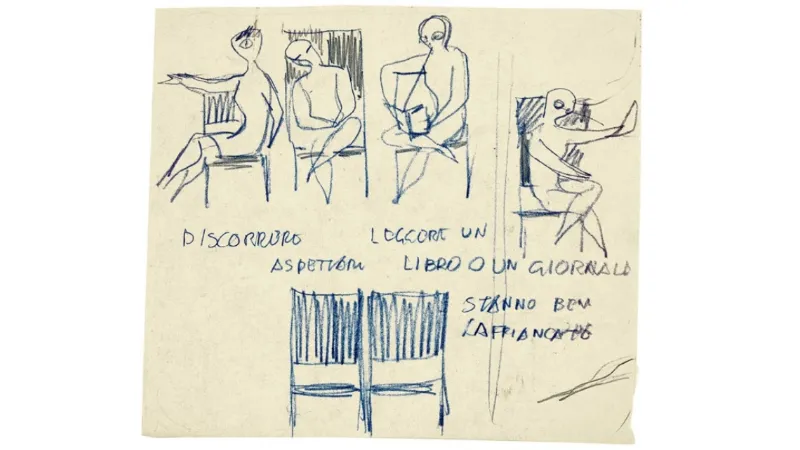 DISCORRERE
LEGGERE UN
ASPETTARE
LIBRO O UN GIORNALE
STANNO BEN